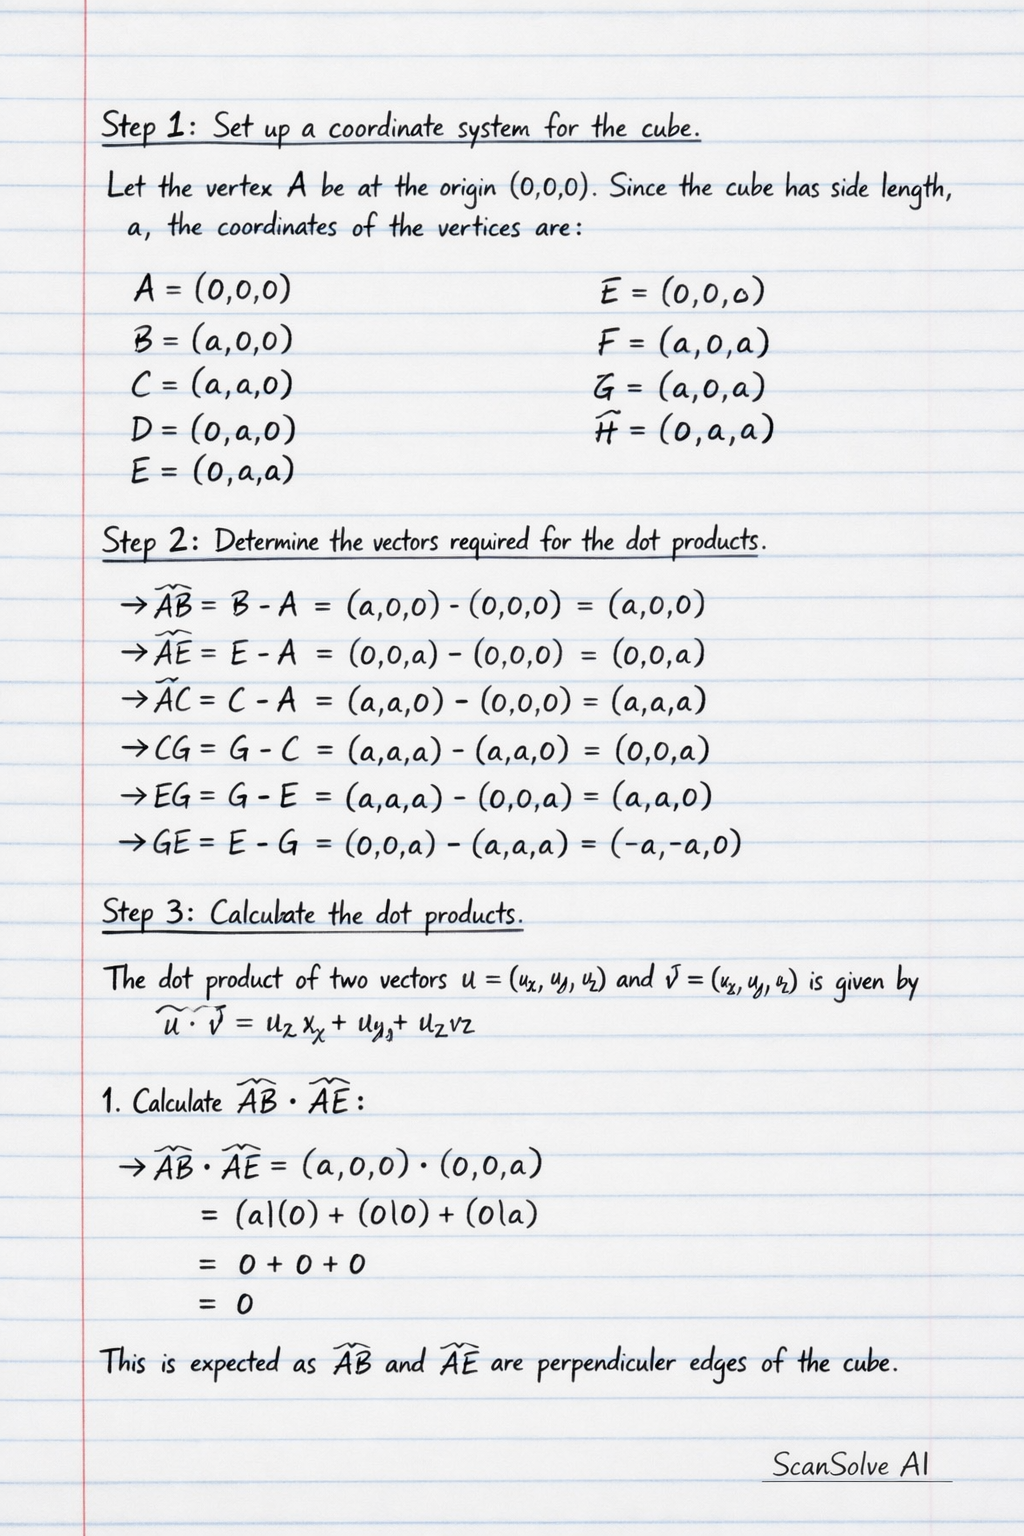 Step 1: Set up a coordinate system for the cube.
Let the vertex A be at the origin (0,0,0). Since the cube has side length,
a, the coordinates of the vertices are:
A = (0,0,0)
B = (a,0,0)
C = (a,a,0)
D = (0,a,0)
E = (0,a,a)
E = (0,0,o)
F = (a,0,a)
G = (a,0,a)
H = (0,a,a)
Step 2: Determine the vectors required for the dot products.
→ AB = B - A = (a,0,0) - (0,0,0) = (a,0,0)
→ AE = E - A = (0,0,a) - (0,0,0) = (0,0,a)
→ AC = C - A = (a,a,0) - (0,0,0) = (a,a,a)
→ CG = G - C = (a,a,a) - (a,a,0) = (0,0,a)
→ EG = G - E = (a,a,a) - (0,0,a) = (a,a,0)
→ GE = E - G = (0,0,a) - (a,a,a) = (-a,-a,0)
Step 3: Calculate the dot products.
The dot product of two vectors u = (ux, uy, uz) and v = (ux, uy, uz) is given by
u · v = uz xx + uyy + uzvz
1. Calculate AB · AE:
→ AB · AE = (a,0,0) · (0,0,a)
= (a|(0) + (0|0) + (0|a)
= 0 + 0 + 0
= 0
This is expected as AB and AE are perpendiculer edges of the cube.
ScanSolve AI